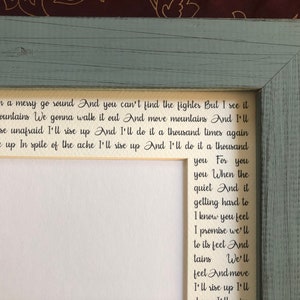 a merry go round And you can't find the fighter But I see it
mountains We gonna walk it out And move mountains And I'll
se unafraid I'll rise up And I'll do it a thousand times again
e up In spite of the ache I'll rise up And I'll do it a thousand
you For you
you When the
quiet And it
getting hard to
I know you feel
I promise we'll
to its feel And
tains We'll
feel And move
I'll rise up I'll